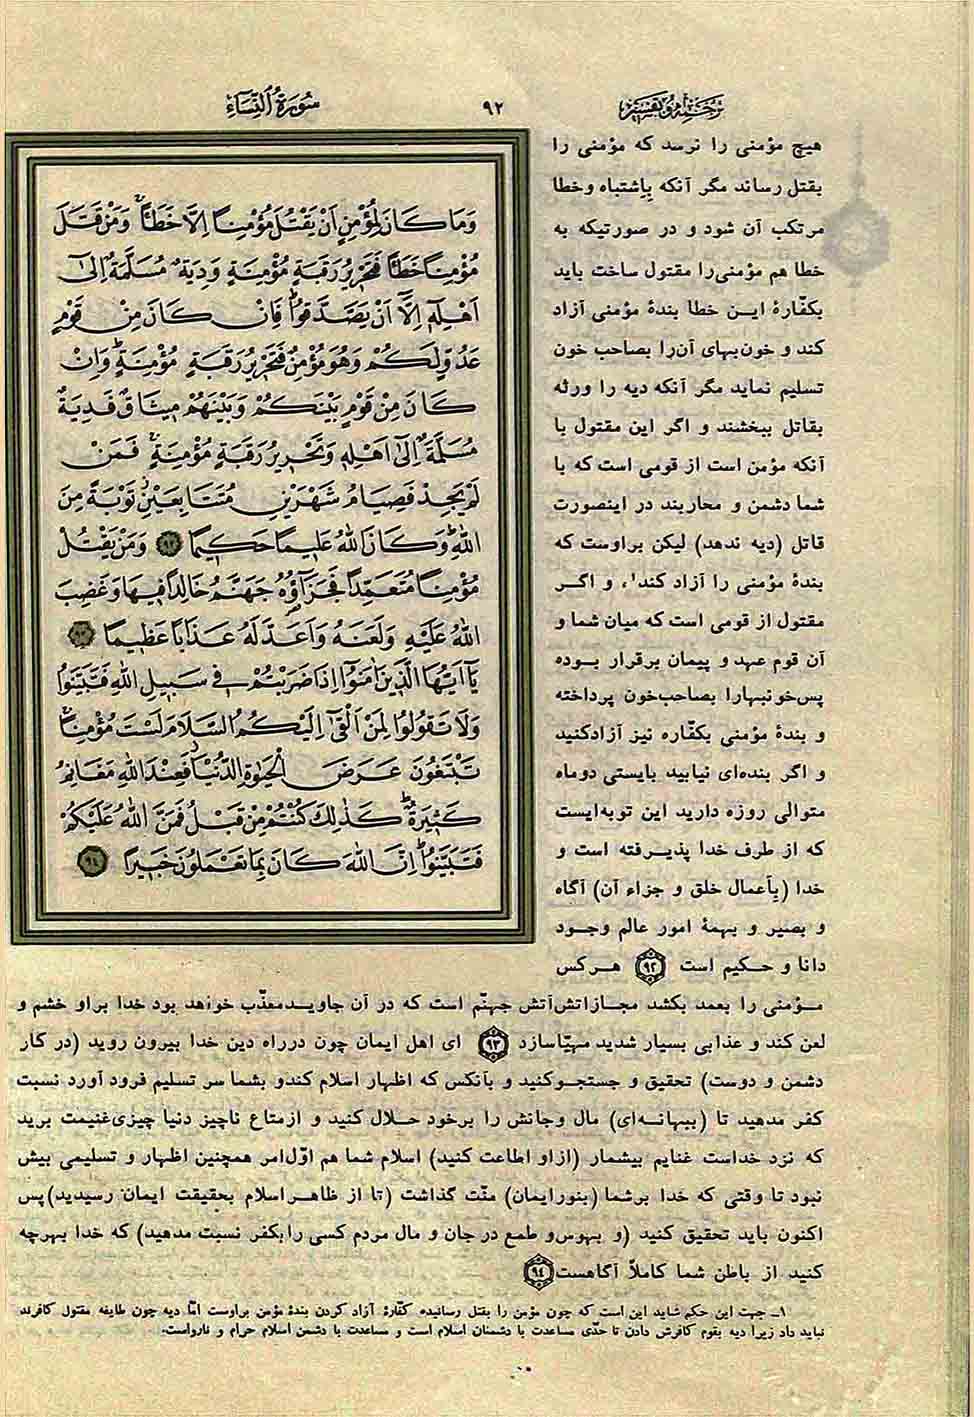 ترجمه و تفسیر
۹۲
سُورَةُ النِّسَاءِ
وَمَا كَانَ لِمُؤْمِنٍ اَنْ يَقْتُلَ مُؤْمِنًا اِلَّا خَطَـًٔا وَمَنْ قَتَلَ
مُؤْمِنًا خَطَـًٔا فَتَحْرِيرُ رَقَبَةٍ مُؤْمِنَةٍ وَدِيَةٌ مُسَلَّمَةٌ اِلٰى
اَهْلِهِ اِلَّا اَنْ يَصَّدَّقُوا فَاِنْ كَانَ مِنْ قَوْمٍ
عَدُوٍّ لَكُمْ وَهُوَ مُؤْمِنٌ فَتَحْرِيرُ رَقَبَةٍ مُؤْمِنَةٍ وَاِنْ
كَانَ مِنْ قَوْمٍ بَيْنَكُمْ وَبَيْنَهُمْ مِيثَاقٌ فَدِيَةٌ
مُسَلَّمَةٌ اِلٰى اَهْلِهِ وَتَحْرِيرُ رَقَبَةٍ مُؤْمِنَةٍ فَمَنْ
لَمْ يَجِدْ فَصِيَامُ شَهْرَيْنِ مُتَتَابِعَيْنِ تَوْبَةً مِنَ
اللّٰهِ وَكَانَ اللّٰهُ عَلِيمًا حَكِيمًا ۹۲ وَمَنْ يَقْتُلْ
مُؤْمِنًا مُتَعَمِّدًا فَجَزَاؤُهُ جَهَنَّمُ خَالِدًا فِيهَا وَغَضِبَ
اللّٰهُ عَلَيْهِ وَلَعَنَهُ وَاَعَدَّ لَهُ عَذَابًا عَظِيمًا ۹۳
يَا اَيُّهَا الَّذِينَ اٰمَنُوا اِذَا ضَرَبْتُمْ فِي سَبِيلِ اللّٰهِ فَتَبَيَّنُوا
وَلَا تَقُولُوا لِمَنْ اَلْقٰى اِلَيْكُمُ السَّلَامَ لَسْتَ مُؤْمِنًا
تَبْتَغُونَ عَرَضَ الْحَيٰوةِ الدُّنْيَا فَعِنْدَ اللّٰهِ مَغَانِمُ
كَثِيرَةٌ كَذٰلِكَ كُنْتُمْ مِنْ قَبْلُ فَمَنَّ اللّٰهُ عَلَيْكُمْ
فَتَبَيَّنُوا اِنَّ اللّٰهَ كَانَ بِمَا تَعْمَلُونَ خَبِيرًا ۹۴
هیچ مؤمنی را نرسد که مؤمنی را
بقتل رساند مگر آنکه بإشتباه وخطا
مرتکب آن شود و در صورتیکه به
خطا هم مؤمنی‌را مقتول ساخت باید
بکفّارهٔ ایـن خطا بندهٔ مؤمنی آزاد
کند و خون‌بهای آن‌را بصاحب خون
تسلیم نماید مگر آنکه دیه را ورثه
بقاتل ببخشند و اگر این مقتول با
آنکه مؤمن است از قومی است که با
شما دشمن و محاربند در اینصورت
قاتل (دیه ندهد) لیکن براوست که
بندهٔ مؤمنی را آزاد کند۱، و اگـر
مقتول از قومی است که میان شما و
آن قوم عهد و پیمان برقرار بـوده
پس‌خونبهارا بصاحب‌خون پرداخته
و بندهٔ مؤمنی بکفّاره نیز آزادکنید
و اگر بنده‌ای نیابید بایستی دوماه
متوالی روزه دارید این توبه‌ایست
که از طرف خدا پذیـرفته است و
خدا (بأعمال خلق و جزاء آن) آگاه
و بصیر و بهمهٔ امور عالم وجـود
دانا و حـکیم است ۹۲ هـرکس
مـؤمنی را بعمد بکشد مجـازاتش‌آتش جهنّم است که در آن جاویـدمعذّب خواهد بود خدا براو خشم و
لعن کند و عذابی بسیار شدید مهیّاسازد ۹۳ ای اهل ایمان چون درراه دین خدا بیرون روید (در کار
دشمن و دوست) تحقیق و جستجـوکنید و بآنکس که اظهار اسلام کندو بشما سر تسلیم فرود آورد نسبت
کفر مدهید تا (ببهانـه‌ای) مال وجانش را برخود حـلال کنید و ازمتاع ناچیز دنیا چیزی‌غنیمت برید
که نزد خداست غنایم بیشمار (ازاو اطاعت کنید) اسلام شما هم اوّل‌امر همچنین اظهار و تسلیمی بیش
نبود تا وقتی که خدا برشما (بنورایمان) منّت گذاشت (تا از ظاهـراسلام بحقیقت ایمان رسیدید)پس
اکنون باید تحقیق کنید (و بهوس‌و طمع در جان و مال مردم کسی رابکفر نسبت مدهید) که خدا بهرچه
کنید از باطن شما کاملاً آگاهست ۹۴
۱ـ جهت این حکم شاید این است که چون مؤمن را بقتل رسانیده کفّارهٔ آزاد کردن بندهٔ مؤمن براوست امّا دیه چون طایفه مقتول کافرند
نباید داد زیرا دیه بقوم کافرش دادن تا حدّی مساعدت با دشمنان اسلام است و مساعدت با دشمن اسلام حرام و نارواست.